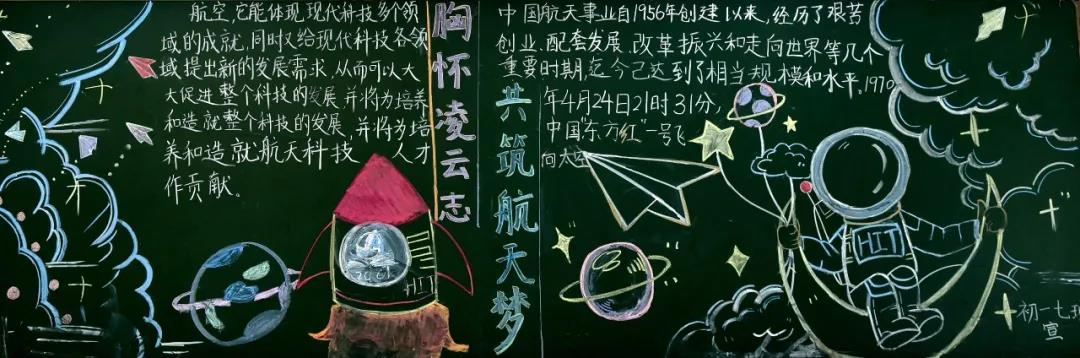 航空，它能体现现代科技多个领
域的成就，同时又给现代科技各领
域提出新的发展需求，从而可以大
大促进整个科技的发展，并将为培养
和造就整个科技的发展，并将为培
养和造就航天科技 人才
作贡献。
胸怀凌云志
共筑航天梦
中国航天事业自1956年创建以来，经历了艰苦
创业、配套发展、改革振兴和走向世界等几个
重要时期，迄今已达到了相当规模和水平。1970
年4月24日21时31分，
中国"东方红"一号飞
向太空
HIT
HIT
初一七班
宣